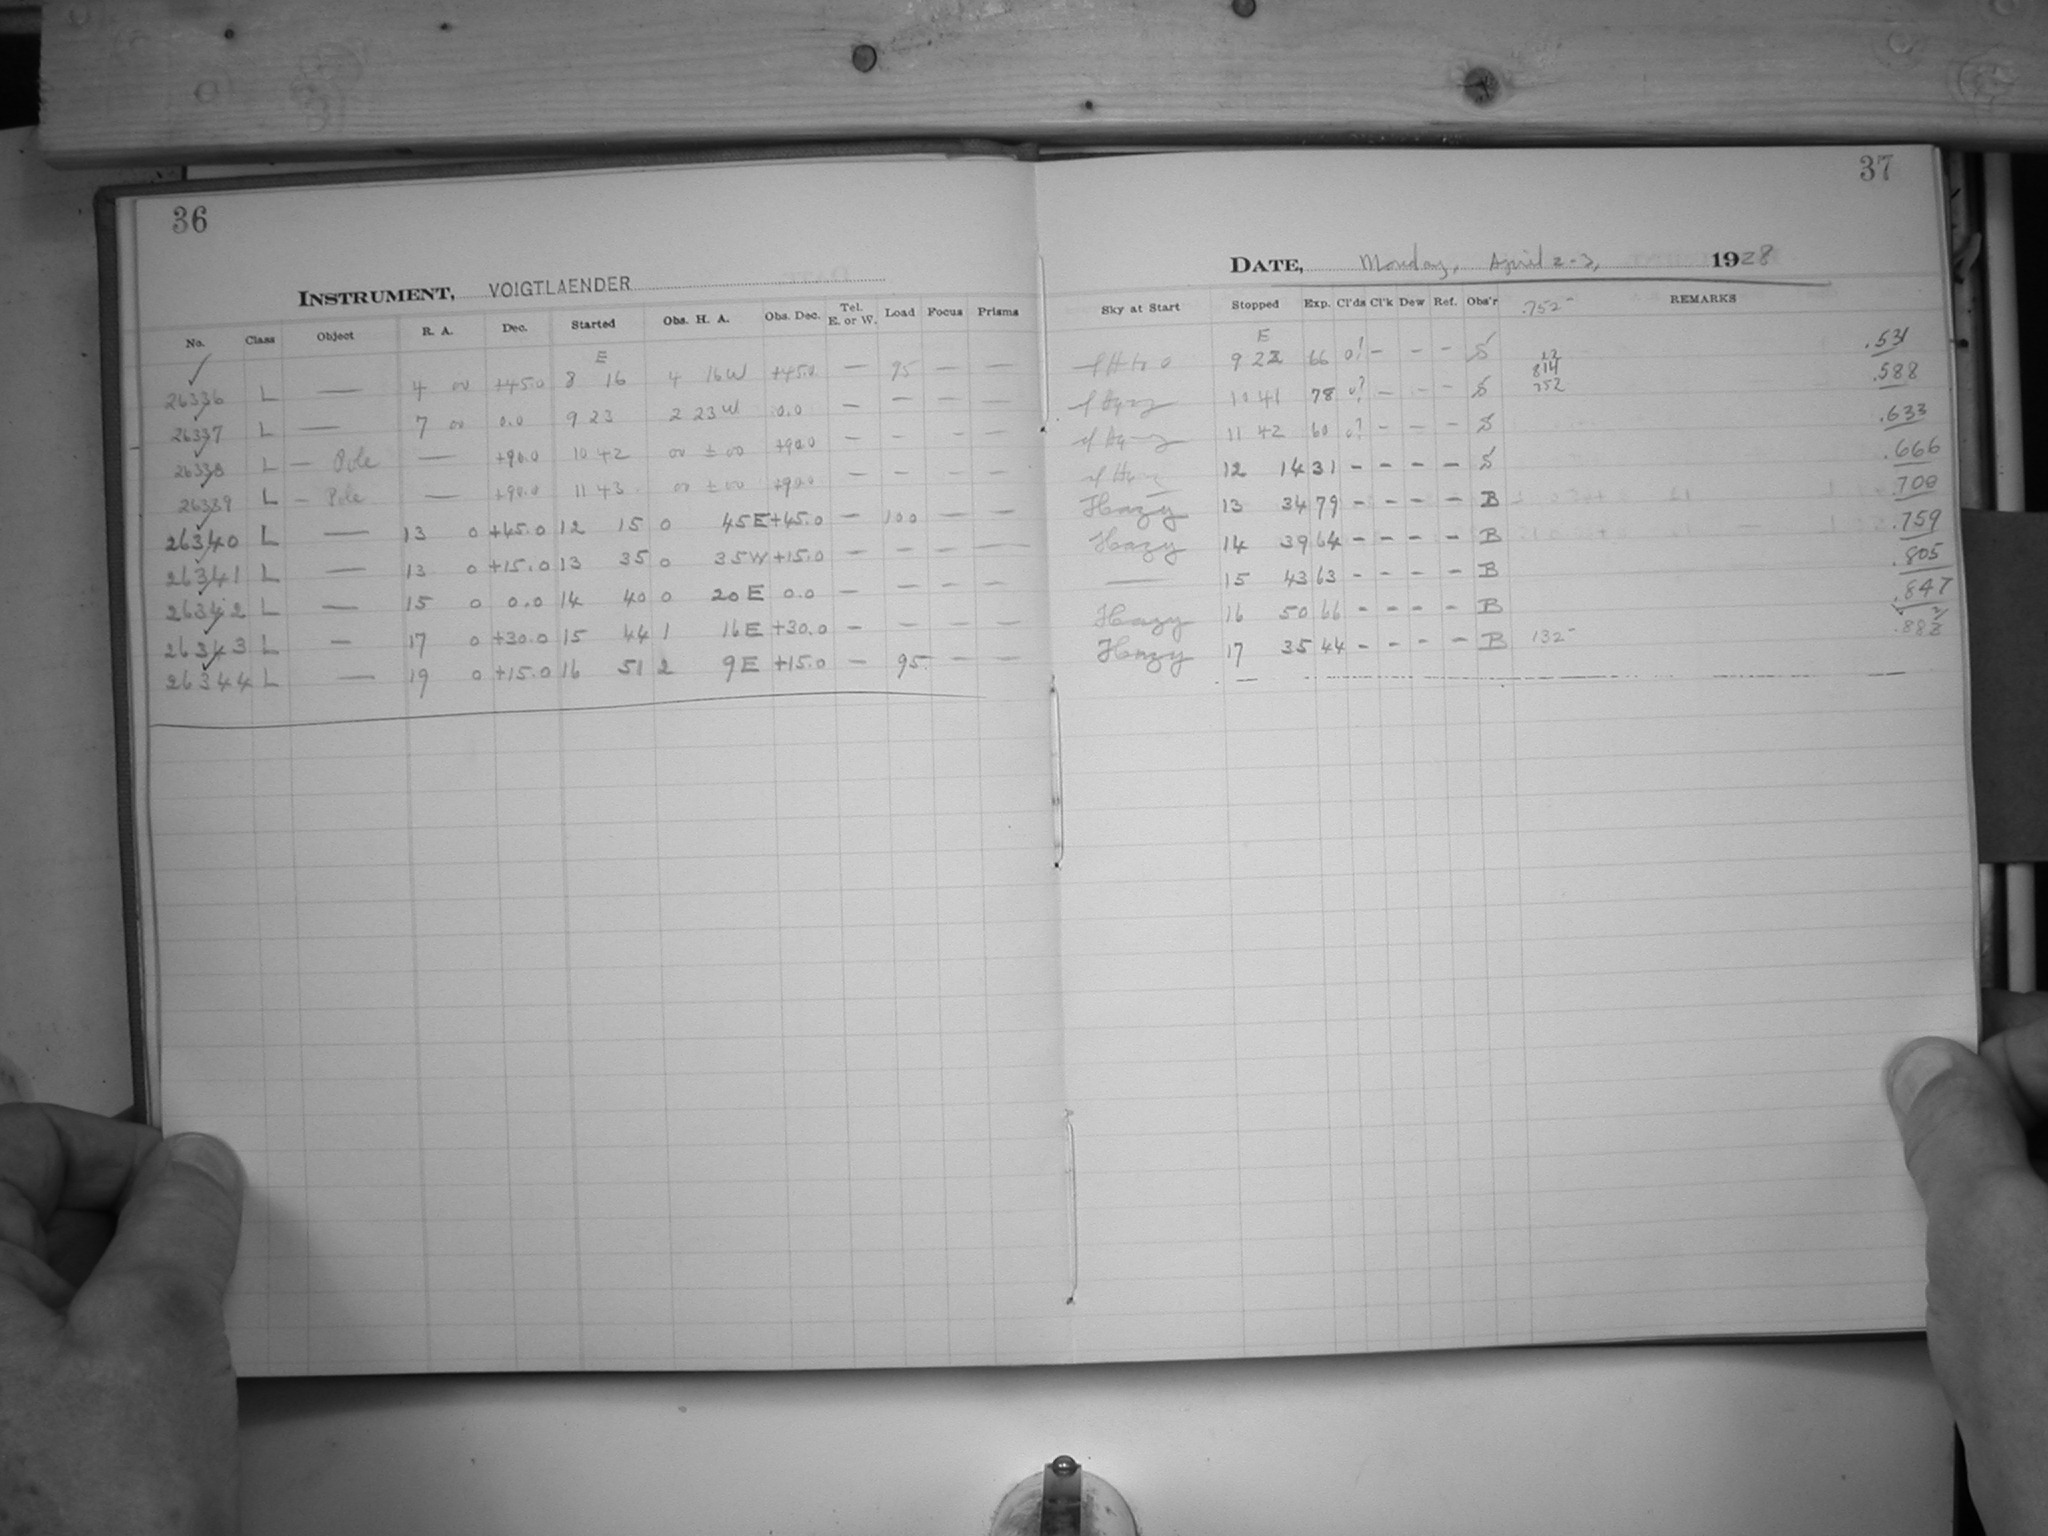 36
INSTRUMENT, VOIGTLAENDER
No. Class Object R. A. Dec. Started Obs. H. A. Obs. Dec. Tel. E. or W. Load Focus Prisms
E
26336 L — 4 00 +45.0 8 16 4 16W +45.0 — 95 — —
26337 L — 7 00 0.0 9 23 2 23W 0.0 — — — —
26338 L — Pole — +90.0 10 42 00 ± 00 +90.0 — — — —
26339 L — Pole — +90.0 11 43 00 ± 00 +90.0 — — — —
26340 L — 13 0 +45.0 12 15 0 45E +45.0 — 100 — —
26341 L — 13 0 +15.0 13 35 0 35W +15.0 — — — —
26342 L — 15 0 0.0 14 40 0 20E 0.0 — — — —
26343 L — 17 0 +30.0 15 44 1 16E +30.0 — — — —
26344 L — 19 0 +15.0 16 51 2 9E +15.0 — 95 — —
37
DATE, Monday, April 2-3, 1928
Sky at Start Stopped Exp. Cl'ds Cl'k Dew Ref. Obs'r .752 REMARKS
E
9 22 66 0! — — — S 814 .531
10 41 78 0? — — — S 752 .588
11 42 60 0? — — — S .633
12 14 31 — — — — S .666
Hazy 13 34 79 — — — — B .708
Hazy 14 39 64 — — — — B .759
— 15 43 63 — — — — B .805
Hazy 16 50 66 — — — — B .847
Hazy 17 35 44 — — — — B 132